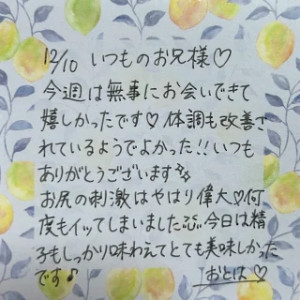 12/10 いつものお兄様♡
今週は無事にお会いできて
嬉しかったです♡体調も改善さ
れているようでよかった!!いつも
ありがとうございます
お尻の刺激はやはり偉大♡何
度もイッてしまいました 今日は精
子もしっかり味わえてとても美味しかった
です♪ おとは♡